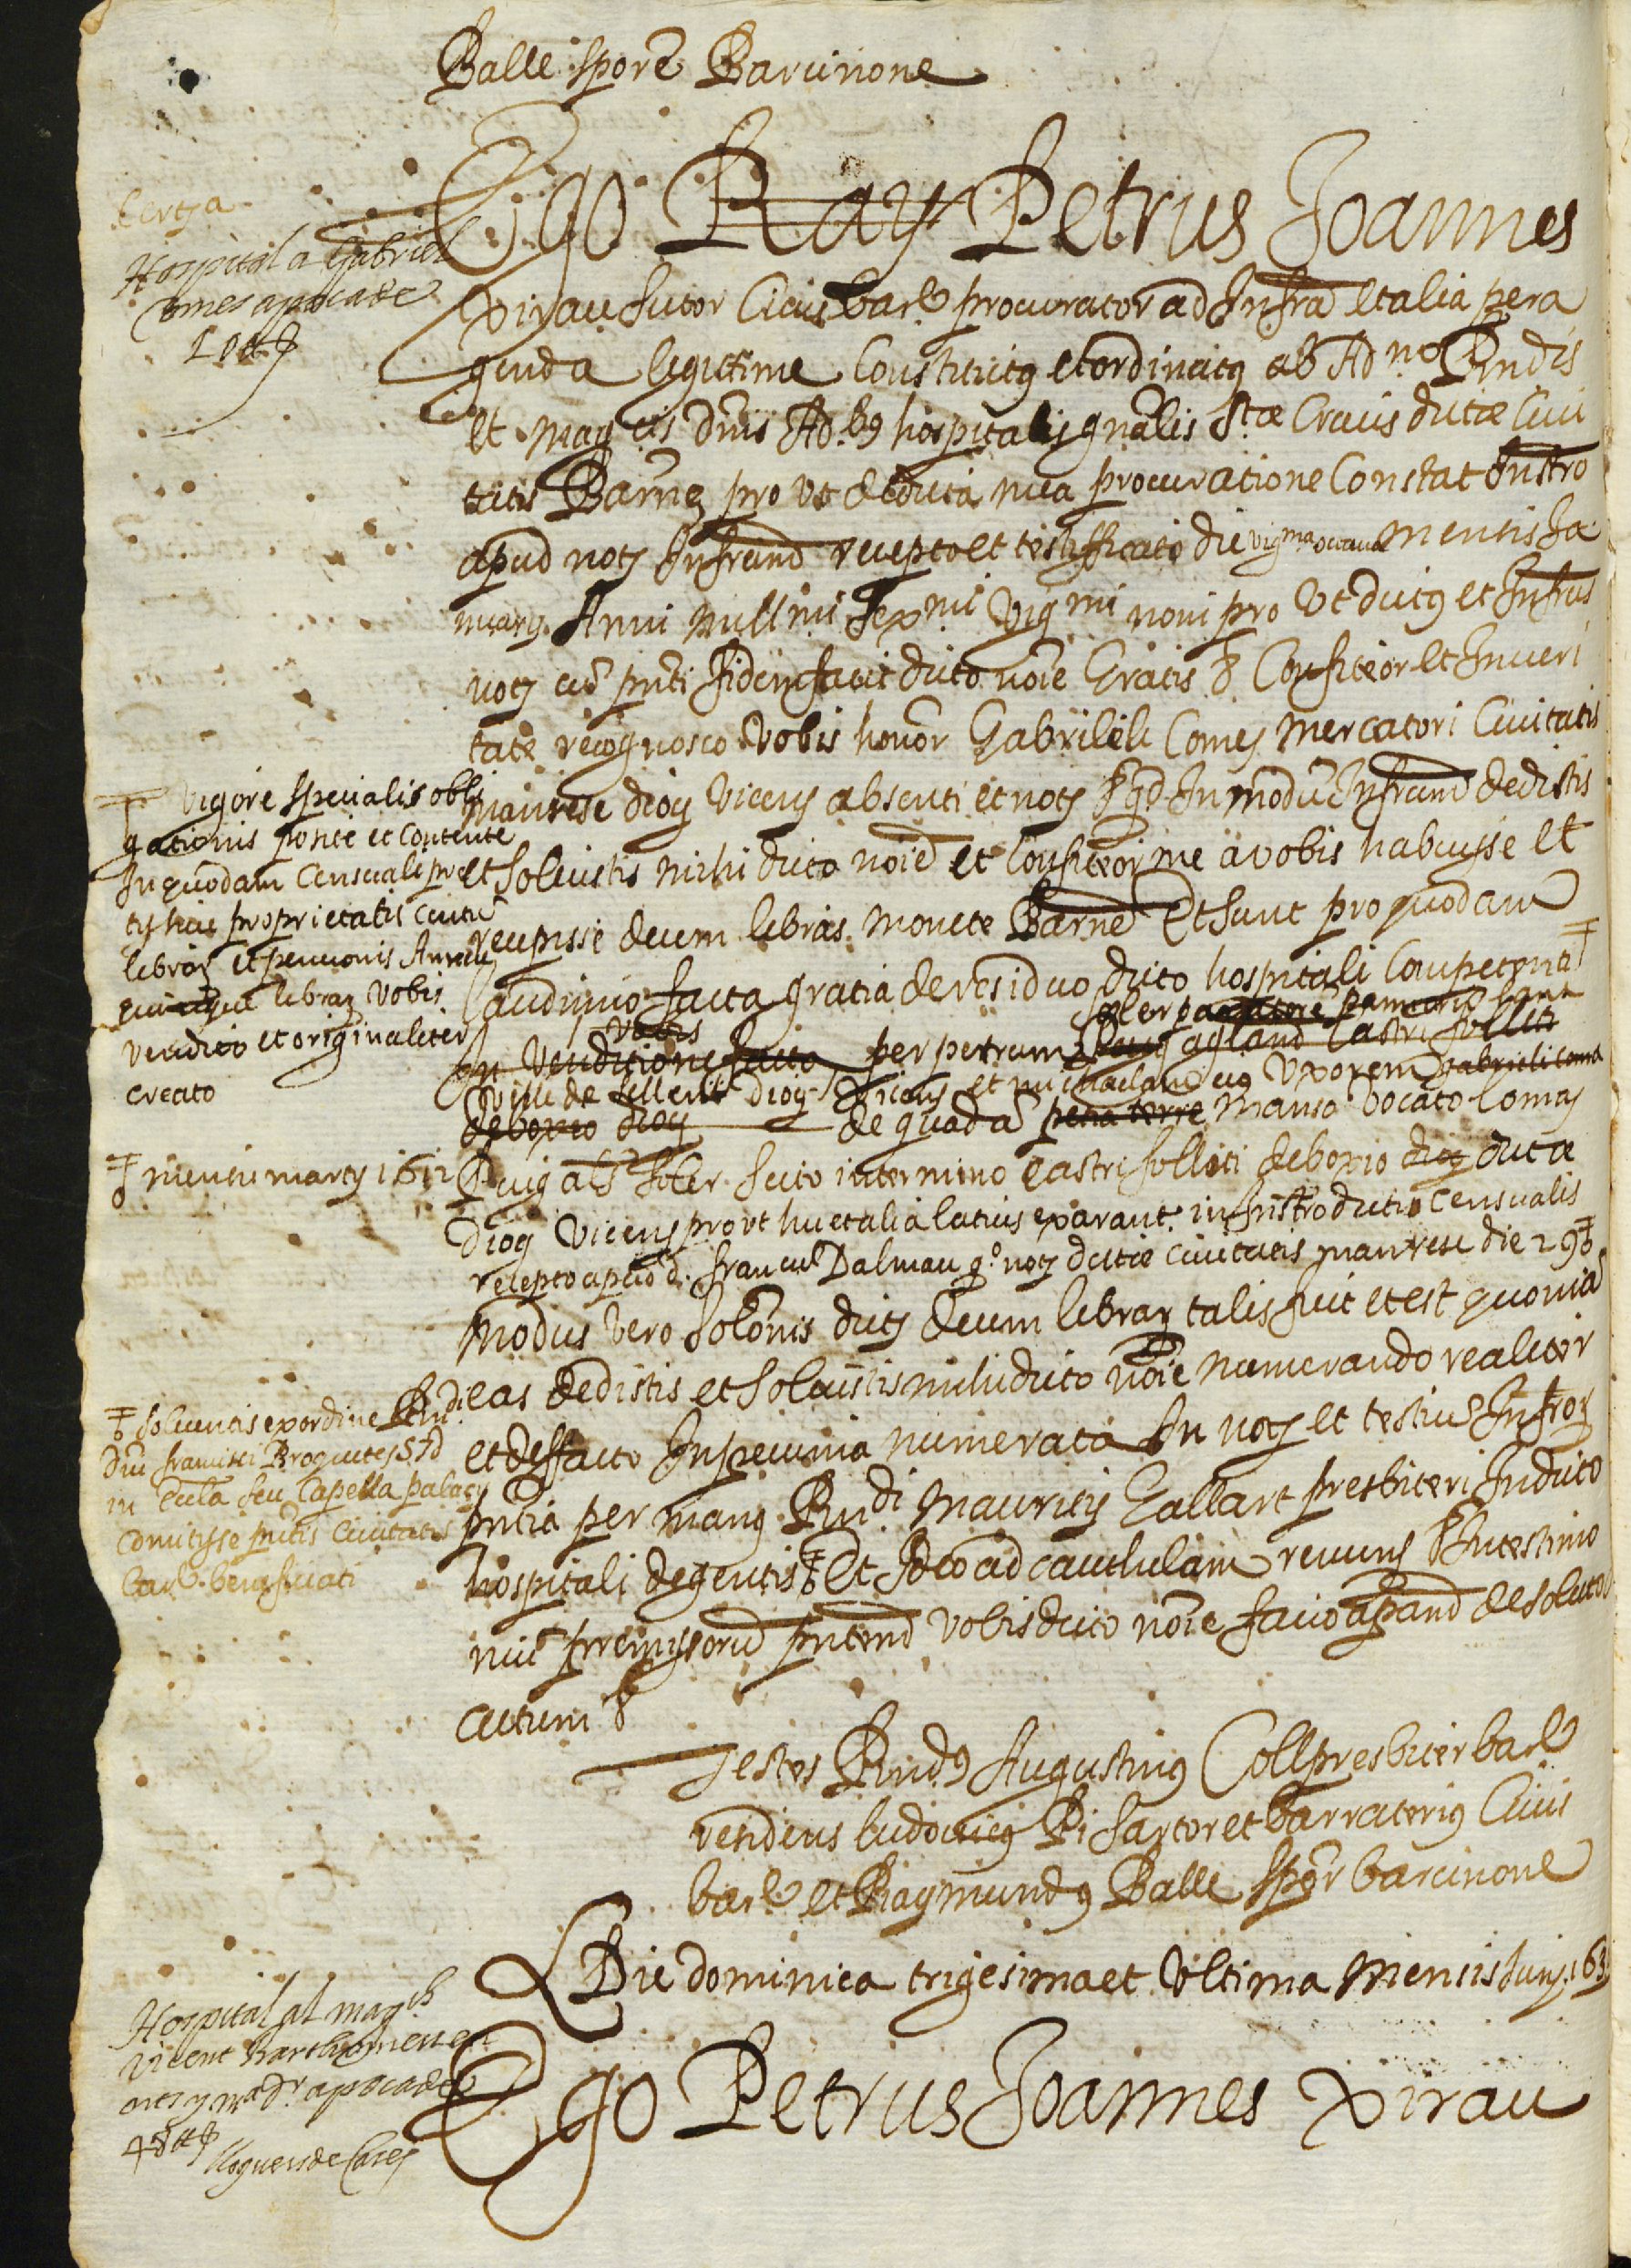 Balle sporẽ Barcinone
certa
Hospital a Gabriel
Comes apoca de
10 ℔
Ego Ray Petrus Joannes
Xirau sutor Civis barᵉ procurator ad Infra et alia pera
genda legittime Constitutꝰ et ordinatꝰ ab Ad.ⁿᵒ Rndis
et magcis dñis Ad.bꝰ hospitalis gnãlis Stæ Crucis dictæ Civi
tatis Barne pro ut de dicta mea procuratione Constat Instro
apud notm Infrãnd recepto et testifficato die vigma octava mensis Ja
nuarij Anni millmi sexmi vigmi noni pro ut dictꝰ et Infrus
notꝰ cũ pnti fidem facit dicto noie Gratis & Confiteor et In veri
tate recognosco vobis honor Gabrieli Comes mercatori Civitatis
manrese diog Vicens absenti et notꝰ & qd In modũ Infrand dedistis
et solvistis mihi dicto noie et Confiteor me a vobis habuisse et
recepisse decem libras monete Barne Et sunt pro quodam
laudimio facta gratia de residuo dicto hospitali Competena
soler paratore pannorũ
vobis
In venditione facta per petrum Puig agland Castri folleti
ville de fillent diog Vicens et michaelam eiꝰ Uxorem gabrieli coma
de boxio diog de quadã petia terre manso vocato lo mas
Puig als soler scito intermino castri folleti de boxio diog dictæ
diog Vicens pro ut hæc et alia latius exarant. in Instro dicti censualis
recepto apud d. franᶜᵘᵐ Dalmau qº. notm dictæ civitatis manrese die 29
modus vero solõnis dictꝰ decem librarꝰ talis fuit et est quoniã
eas dedistis et solvistis mihi dicto noie numerando realiter
et deffacto In pecunia numerata In notꝰ et testiũ Infrorꝰ
pntia per manꝰ Rndi Mauricij Gallart presbiteri In dicto
hospitali degentis Et Ideo ad cauthelam renuns & In testimo
niũ premissorũ pntem vobis dicto noie facio apãnd de soluto
Actum &
vigore specialis obli
gationis posite et Contente
In quodam Censuali pre
tij sive proprietatis centũ
librarꝰ et pensionis Annue
quinque librarꝰ vobis
vendito et originaliter
creato
mensis martij 1612
solventis ex ordine Rndi
dñi francisci Broquetes Ad
in Ecclã seu Capella palacij
Comitisse pntis Civitatis
Barᵉ beneficiati
Testes Rndꝰ Augustinꝰ Coll presbiter barᵉ
residens ludovicꝰ Pi sartor et barraterijꝰ Civis
barᵉ et Raymundꝰ Balle spor barcinone
Die dominica trigesima et Ultima mensis Junij 163
Hospital al magch
Vicent Barthomeu en
arts y mᵃ dʳ. apoca de
48 ℔
lloguers de Cases
Ego Petrus Joannes Xirau